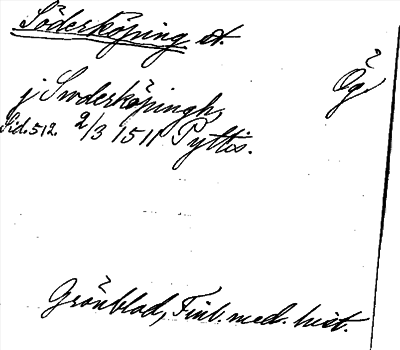 Söderköping st.
Ög
j Swderköpingh,
Sid. 512. 2/3 1511 Pyttis.
Grönblad, Finl. med. hist.